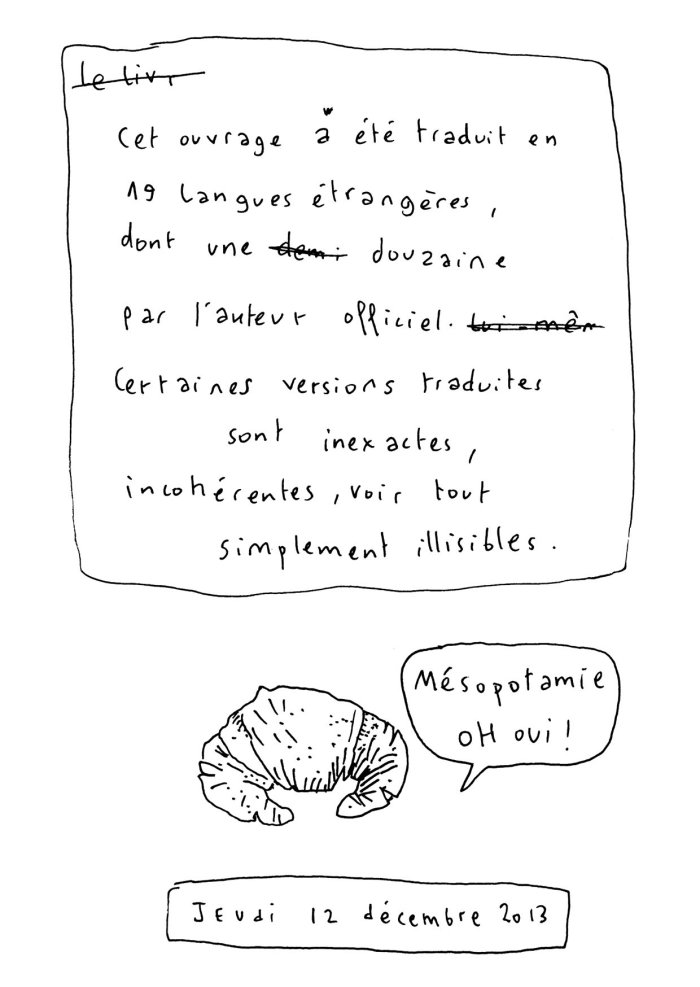 le livr
Cet ouvrage a été traduit en
19 langues étrangères,
dont une demi douzaine
par l'auteur officiel. lui-mêm
Certaines versions traduites
sont inexactes,
incohérentes, voir tout
simplement illisibles.
Mésopotamie
OH oui !
Jeudi 12 décembre 2013